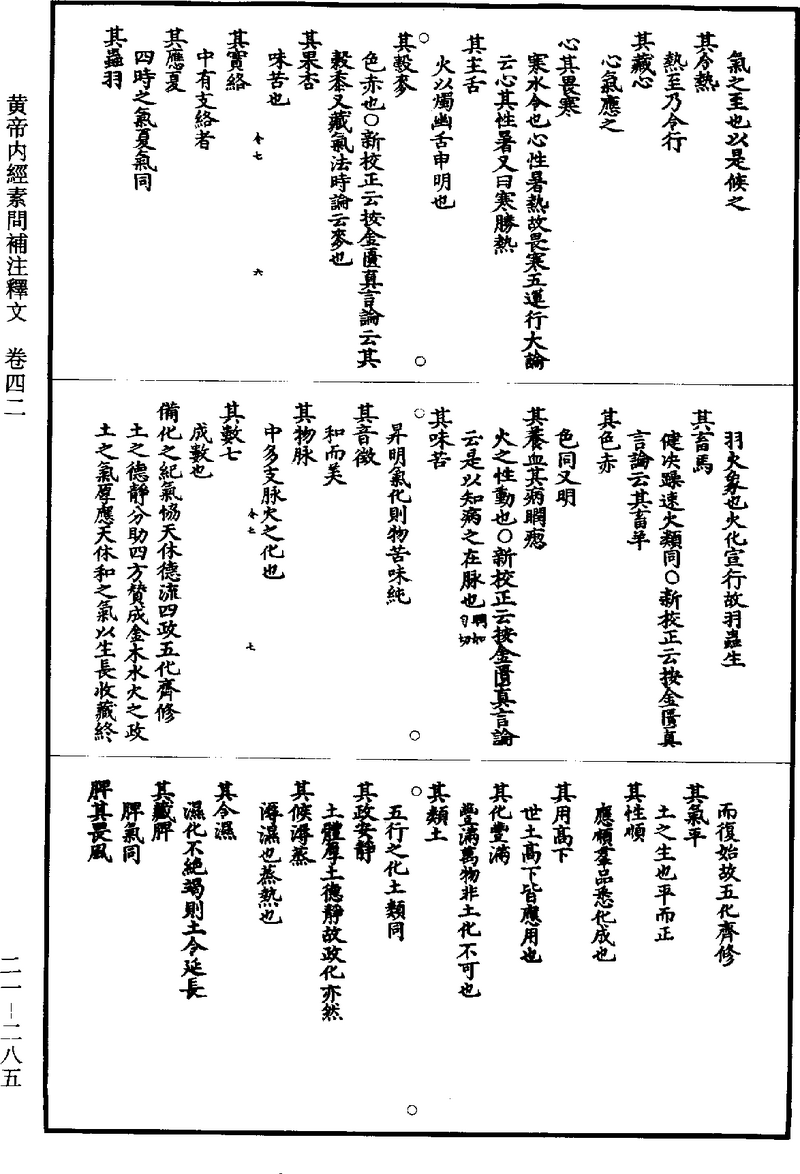 黄帝内經素問補注釋文　卷四二
二一—二八五
氣之至也以是候之
其令熱
熱至乃令行
其藏心
心氣應之
心其畏寒
寒水令也心性暑熱故畏寒五運行大論
云心其性暑又曰寒勝熱
其主舌
火以燭幽舌申明也
其穀麥
色赤也○新校正云按金匱真言論云其
穀黍又藏氣法時論云麥也
其果杏
味苦也
其實絡
中有支絡者
其應夏
四時之氣夏氣同
其蟲羽
羽火象也火化宣行故羽蟲生
其畜馬
健決躁速火類同○新校正云按金匱真
言論云其畜羊
其色赤
色同又明
其養血其病瞤瘛
火之性動也○新校正云按金匱真言論
云是以知病之在脉也瞤如勻切
其味苦
昇明氣化則物苦味純
其音徵
和而美
其物脉
中多支脉火之化也
其數七
成數也
備化之紀氣恊天休德流四政五化齊修
土之德靜分助四方贊成金木水火之政
土之氣厚應天休和之氣以生長收藏終
而復始故五化齊修
其氣平
土之生也平而正
其性順
應順羣品悉化成也
其用高下
世土高下皆應用也
其化豐滿
豐滿萬物非土化不可也
其類土
五行之化土類同
其政安靜
土體厚土德靜故政化亦然
其候溽蒸
溽濕也蒸熱也
其令濕
濕化不絶竭則土令延長
其藏脾
脾氣同
脾其畏風